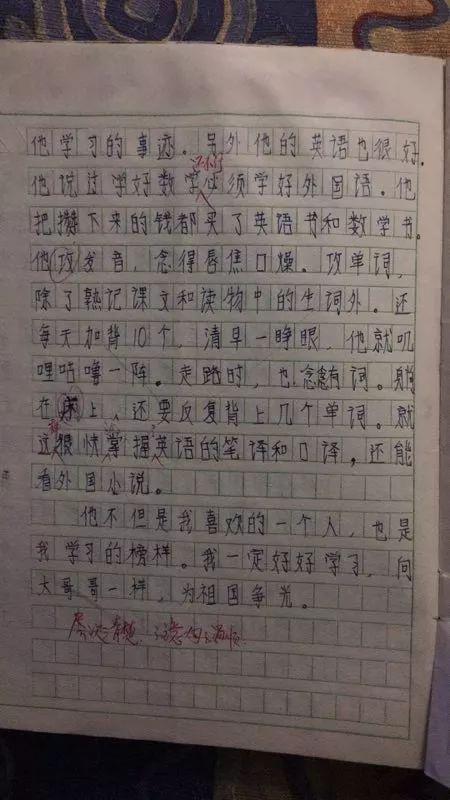 他学习的事迹。另外他的英语也很好。
他说过学好数学必须学好外国语。他
把攒下来的钱都买了英语书和数学书。
他攻发音,念得唇焦口燥。攻单词,
除了熟记课文和读物中的生词外。还
每天加背10个,清早一睁眼,他就叽
哩咕噜一阵。走路时,也念念有词。躺
在床上,还要反复背上几个单词。就
这很快掌握英语的笔译和口译,还能
看外国小说。
他不但是我喜欢的一个人,也是
我学习的榜样。我一定好好学习,向
大哥哥一样,为祖国争光。
清楚